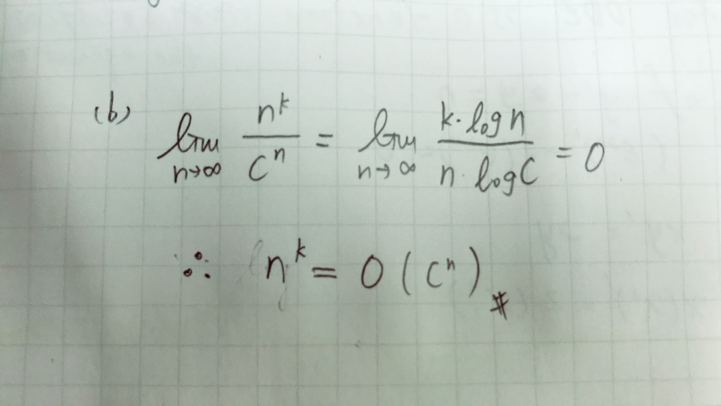 (b) lim n→∞ n^k / C^n = lim n→∞ k·log n / n·log C = 0
∴ n^k = O(c^n) #